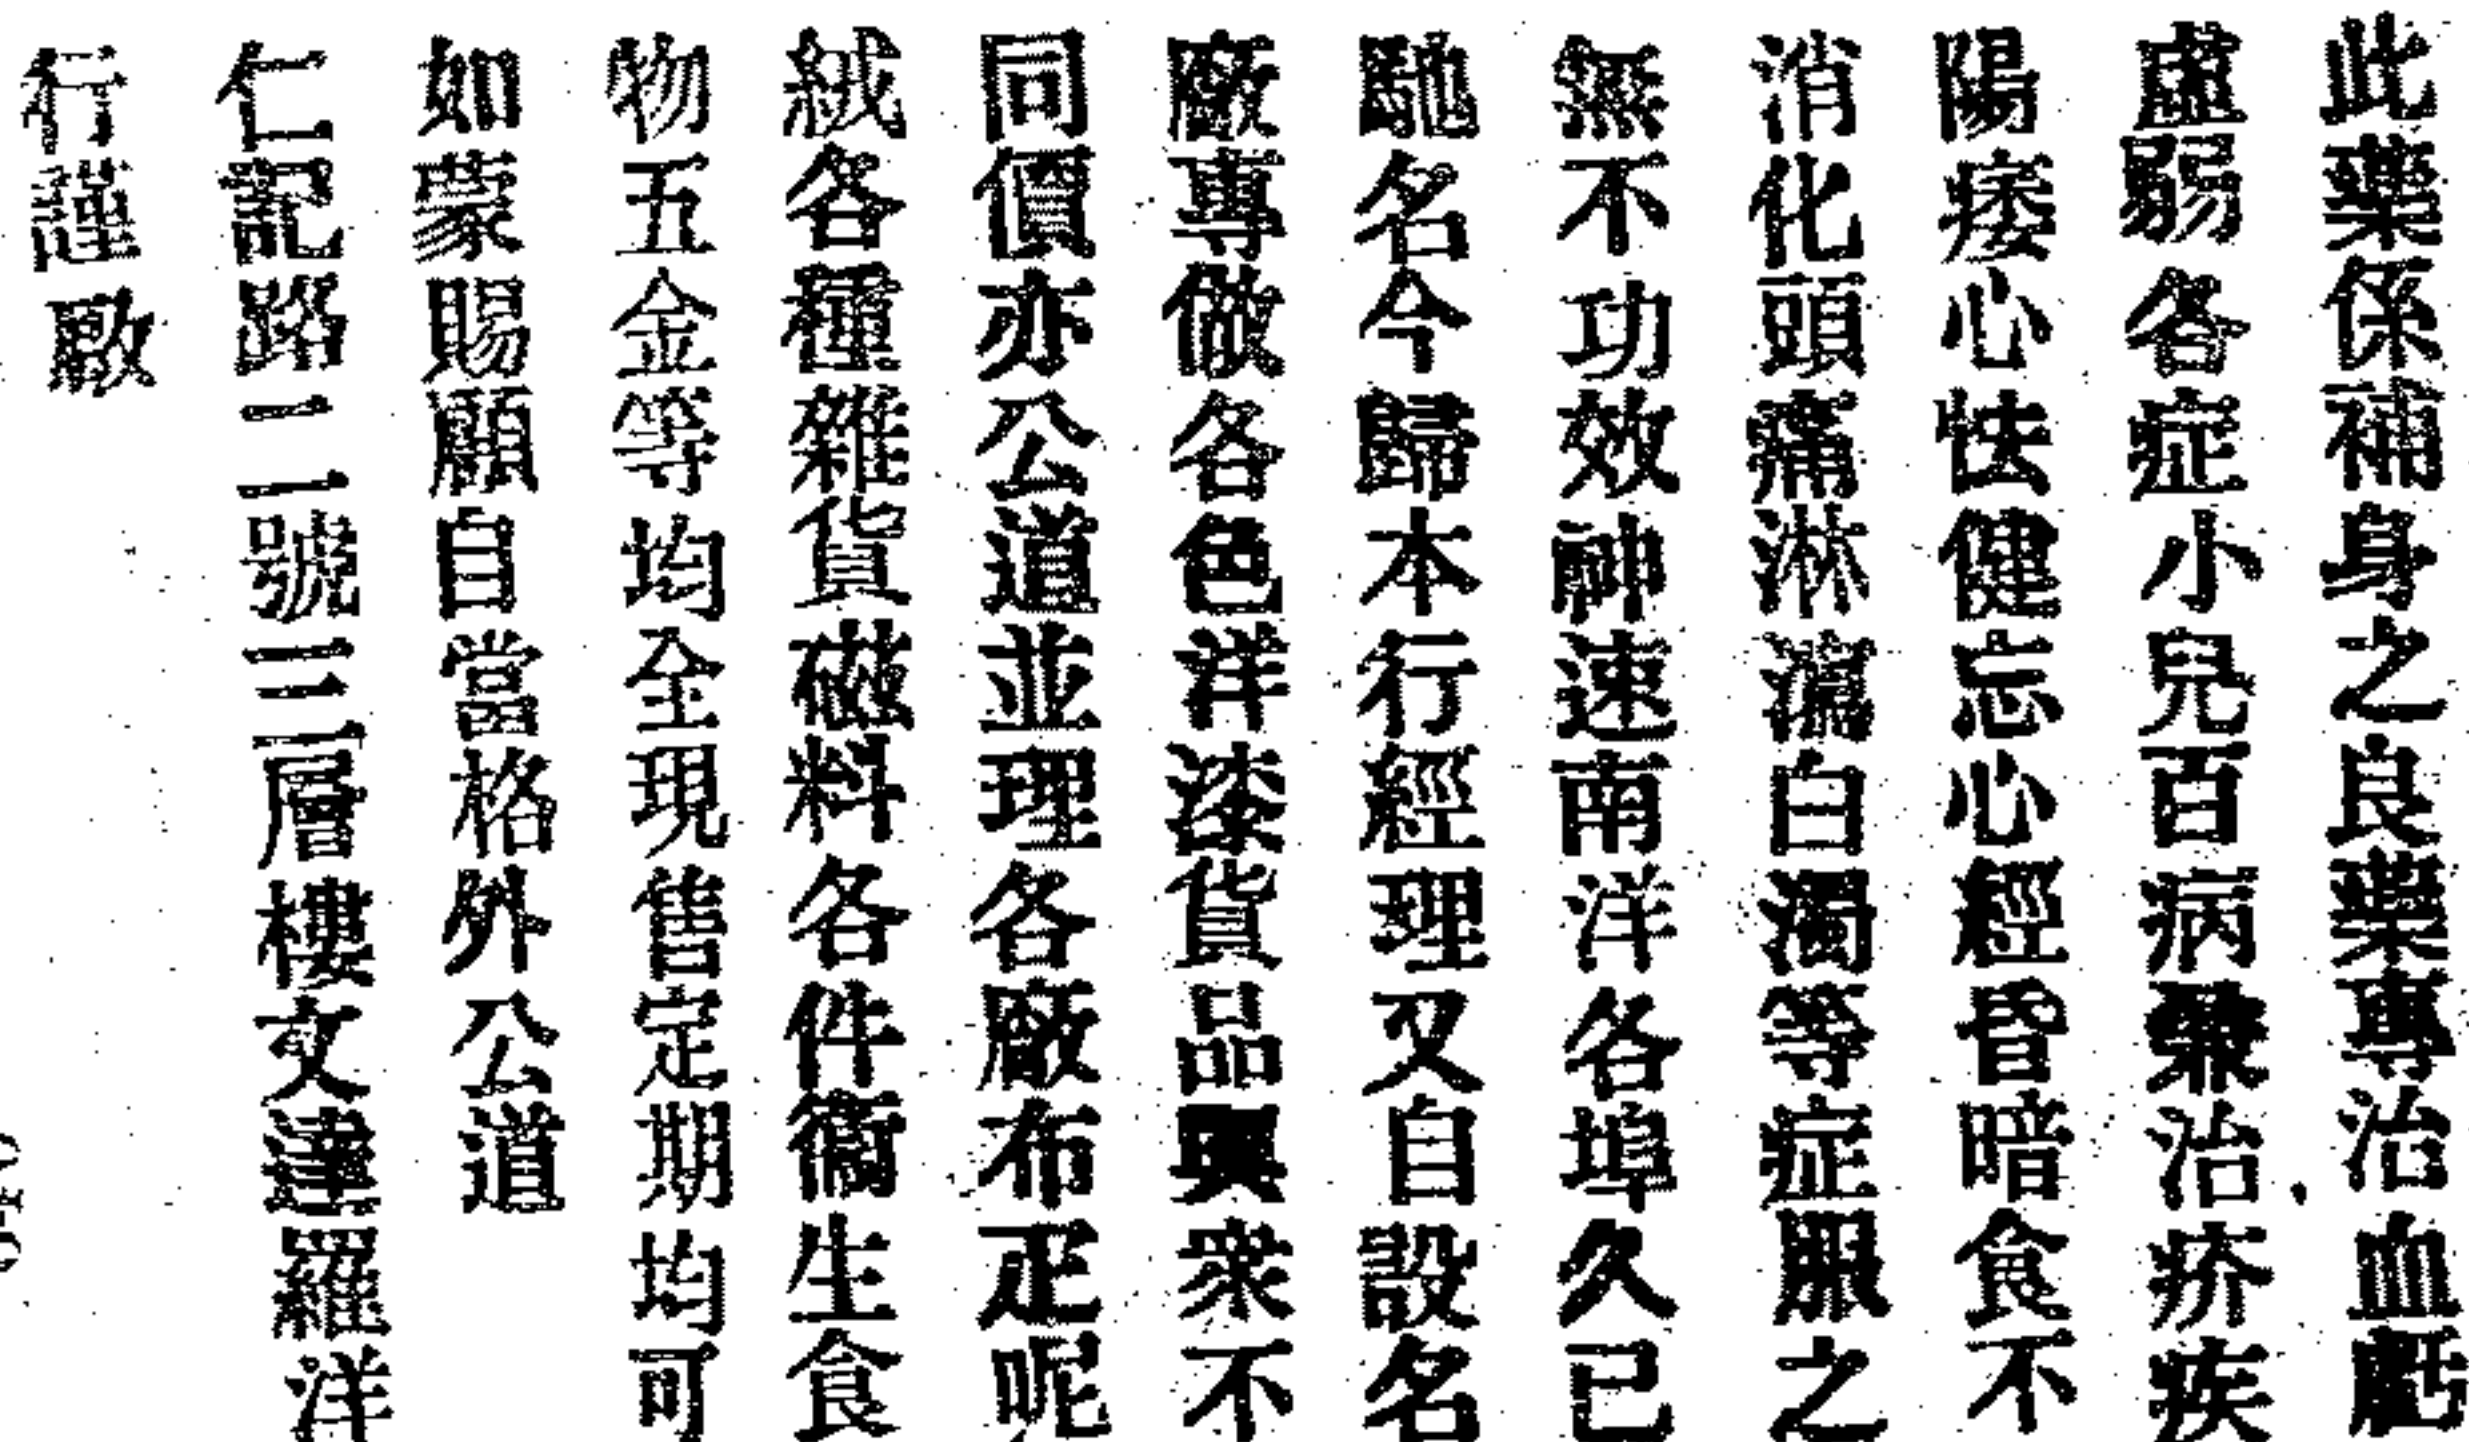 此藥係補身之良藥專治血虧
虛弱各症小兒百病兼治疥疾
陽痿心怯健忘心經昏暗食不
消化頭痛淋濁白濁等症服之
無不功效神速南洋各埠久已
馳名今歸本行經理又自設名
廠專做各色洋漆貨品與衆不
同價亦公道並理各廠布疋呢
絨各種雜貨磁料各件衛生食
物五金等均全現售定期均可
如蒙賜顧自當格外公道
仁記路二二號三層樓文達羅洋
行謹啟